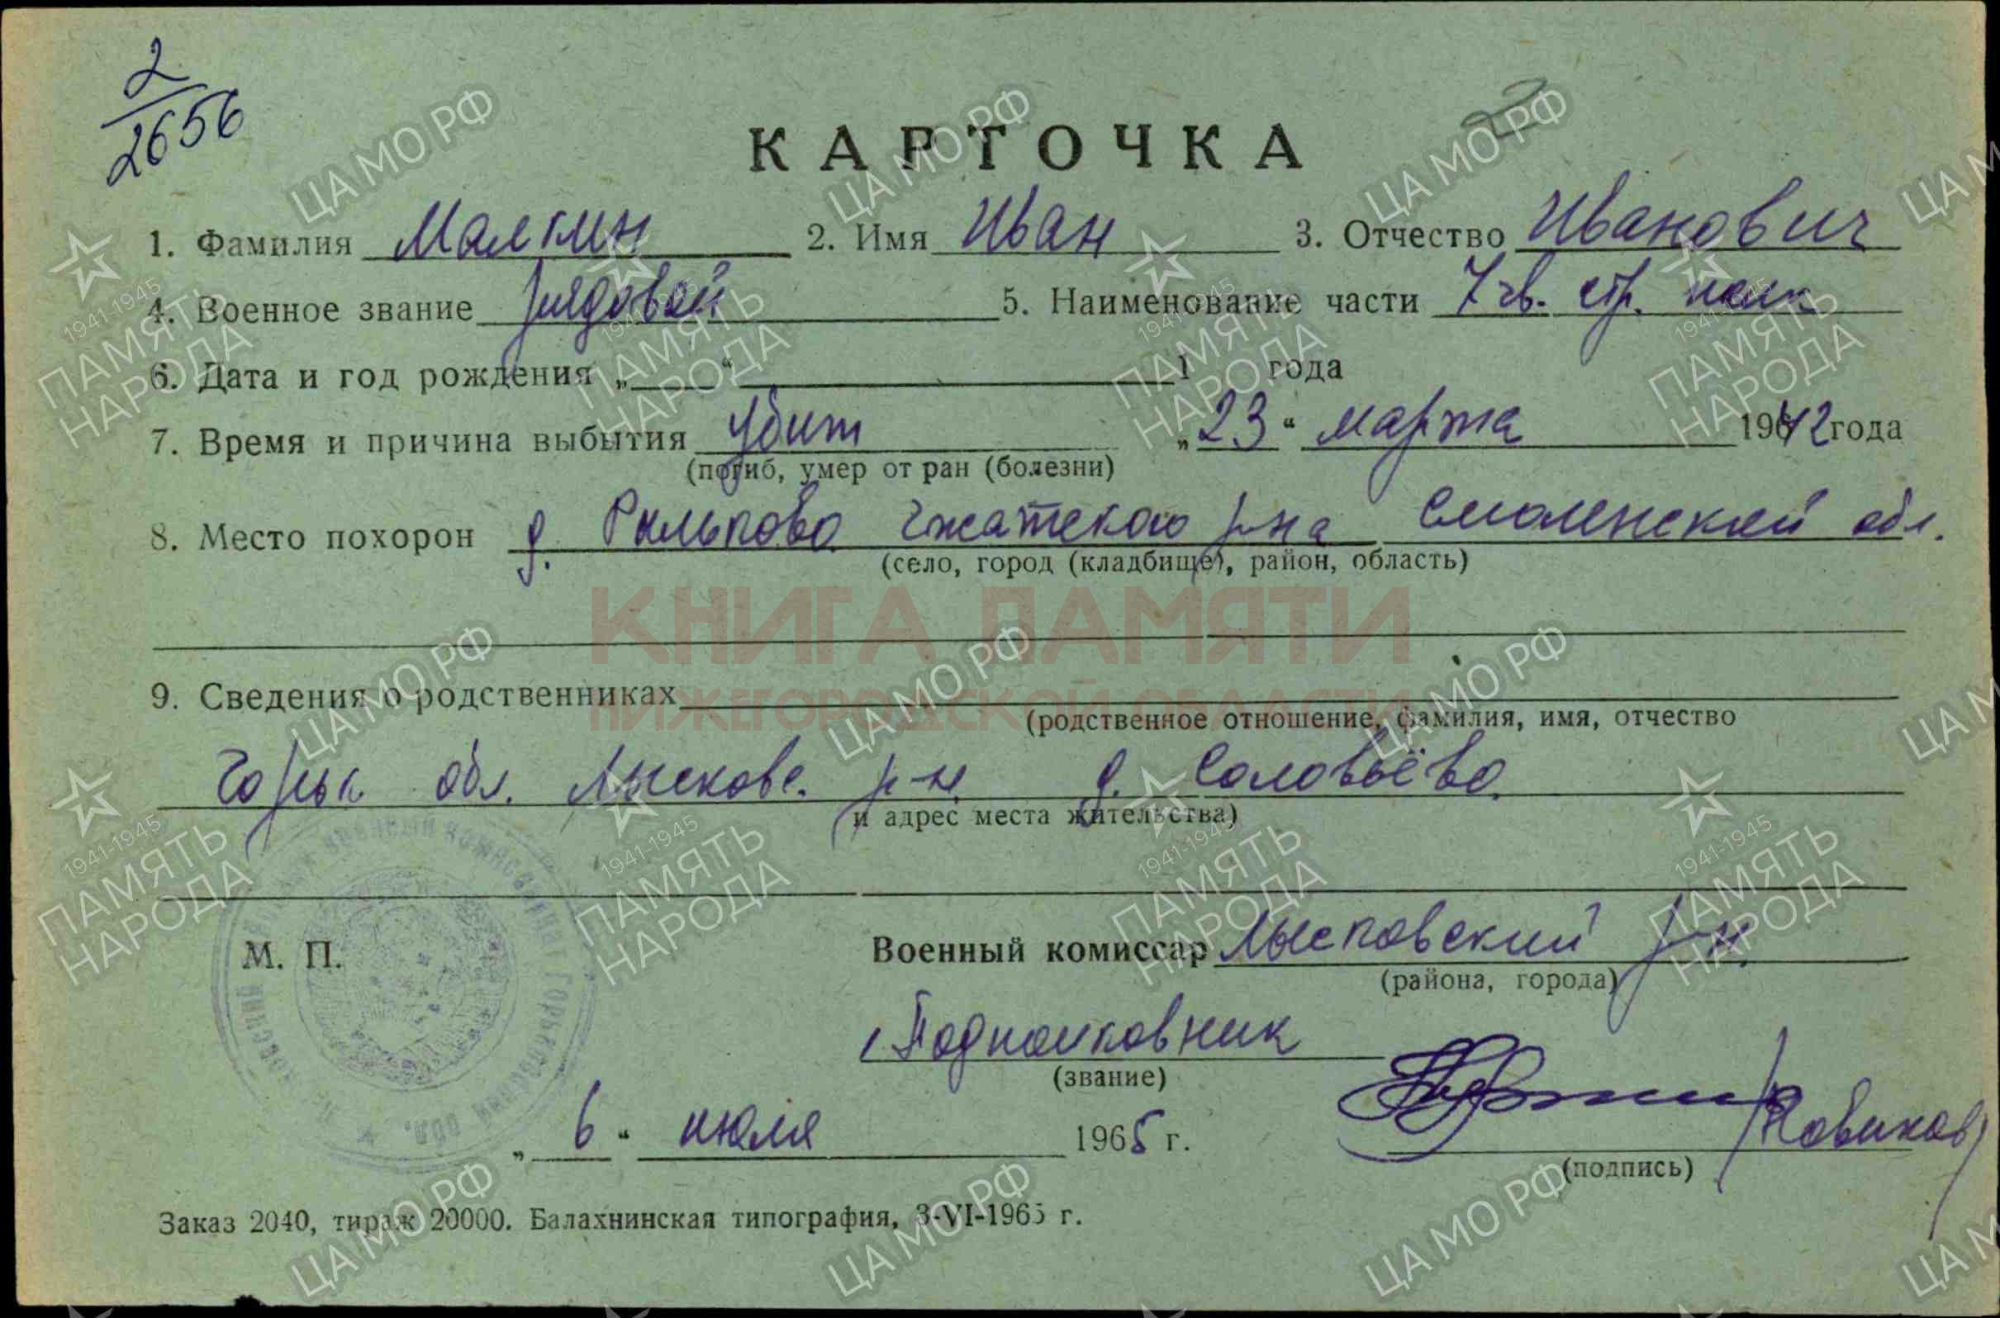 2
2656
КАРТОЧКА
1. Фамилия Малгин 2. Имя Иван 3. Отчество Иванович
4. Военное звание рядовой 5. Наименование части 7 гв. стр. полк
6. Дата и год рождения „ “ 1 года
7. Время и причина выбытия убит „23“ марта 1942 года
(погиб, умер от ран (болезни)
8. Место похорон д. Рыльково Гжатского р-на Смоленской обл.
(село, город (кладбище), район, область)
КНИГА ПАМЯТИ
НИЖЕГОРОДСКОЙ ОБЛАСТИ
9. Сведения о родственниках
(родственное отношение, фамилия, имя, отчество
Горьк обл. Лысковс. р-н д. Соловьёво
и адрес места жительства)
М. П.
Военный комиссар Лысковский р-н
(района, города)
Подполковник
(звание)
„6“ июля 1965 г.
/Новиков/
(подпись)
Заказ 2040, тираж 20000. Балахнинская типография, 3-VI-1965 г.
ЦА МО РФ
1941-1945
ПАМЯТЬ
НАРОДА